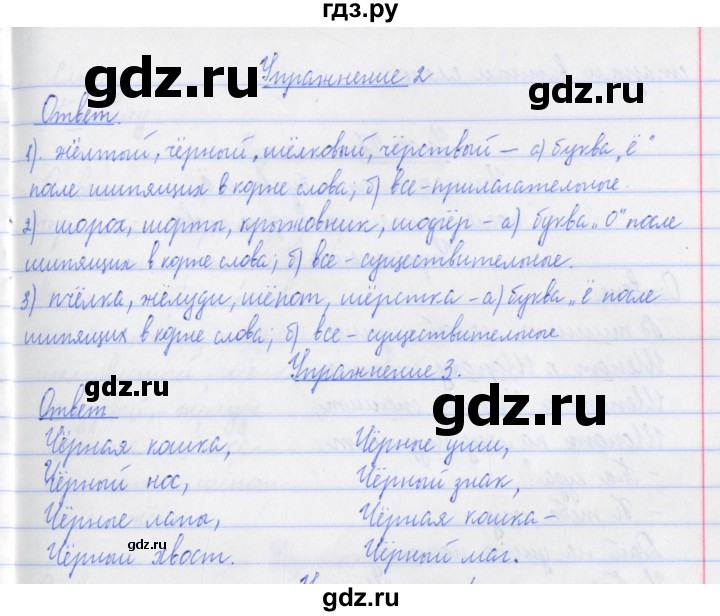 гдз.ру
gdz.ru
gdz.ru
Упражнение 2
Ответ.
1). жёлтый, чёрный, шёлковый, чёрствый – а) буква „ё"
после шипящих в корне слова; б) все - прилагательные.
2) шорох, шорты, крыжовник, шофёр – а) буква „О" после
шипящих в корне слова; б) все - существительные.
3) пчёлка, жёлуди, шёпот, шёрстка – а) буква „ё после
шипящих в корне слова; б) все - существительные
Упражнение 3.
gdz.ru
gdz.ru
Ответ
Чёрная кошка,
Чёрный нос,
Чёрные лапы,
Чёрный хвост.
Чёрные уши,
Чёрный знак,
Чёрная кошка –
Чёрный маг.
gdz.ru
gdz.ru
gdz.ru